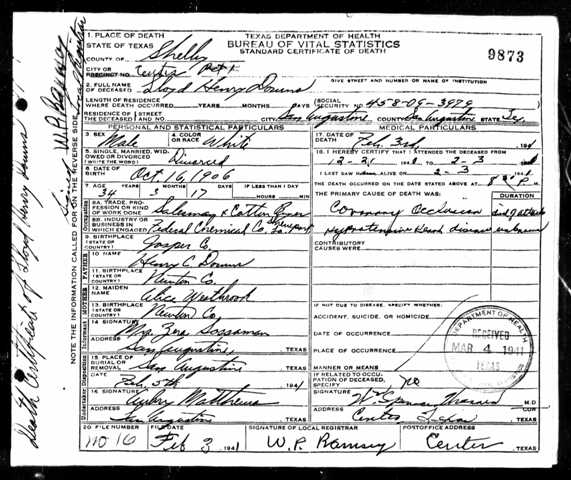 TEXAS DEPARTMENT OF HEALTH
BUREAU OF VITAL STATISTICS
STANDARD CERTIFICATE OF DEATH
9873
1. PLACE OF DEATH
STATE OF TEXAS
COUNTY OF Shelby
CITY OR PRECINCT NO. Center
GIVE STREET AND NUMBER OR NAME OF INSTITUTION
2. FULL NAME OF DECEASED Lloyd Henry Downs
LENGTH OF RESIDENCE WHERE DEATH OCCURRED YEARS MONTHS DAYS SOCIAL SECURITY NO. 458-09-3979
RESIDENCE OF THE DECEASED STREET NO. San Augustine CITY San Augustine COUNTY STATE Tex.
PERSONAL AND STATISTICAL PARTICULARS
3. SEX Male 4. COLOR OR RACE White
5. SINGLE, MARRIED, WIDOWED OR DIVORCED Divorced
6. DATE OF BIRTH Oct, 16, 1906
7. AGE 34 YEARS 3 MONTHS 17 DAYS IF LESS THAN 1 DAY HOURS MIN
8A. TRADE, PROFESSION OR KIND OF WORK DONE Salesman & Cotton Buyer
8B. INDUSTRY OR BUSINESS IN WHICH ENGAGED Federal Chemical Co.
9. BIRTHPLACE (STATE OR COUNTRY) Jasper Co.
FATHER
10. NAME Henry C. Downs
11. BIRTHPLACE (STATE OR COUNTRY) Newton Co.
MOTHER
12. MAIDEN NAME Alice
13. BIRTHPLACE (STATE OR COUNTRY) Newton Co.
14. SIGNATURE Mrs. Zera Sossaman
ADDRESS San Augustine, TEXAS
15. PLACE OF BURIAL OR REMOVAL San Augustine TEXAS
DATE Feb, 5th, 1941
16. SIGNATURE Aubry Matthews
ADDRESS San Augustine TEXAS
MEDICAL PARTICULARS
17. DATE OF DEATH Feb, 3rd, 1941
18. I HEREBY CERTIFY THAT I ATTENDED THE DECEASED FROM 12-21 TO 2-3
I LAST SAW ALIVE ON 2-3
THE DEATH OCCURRED ON THE DATE STATED ABOVE AT M.
THE PRIMARY CAUSE OF DEATH WAS: DURATION
Coronary Occlusion
Hypertension Heart disease unknown
CONTRIBUTORY CAUSES WERE:
IF NOT DUE TO DISEASE, SPECIFY WHETHER:
ACCIDENT, SUICIDE, OR HOMICIDE
DATE OF OCCURRENCE
PLACE OF OCCURRENCE
MANNER OR MEANS
IF RELATED TO OCCUPATION OF DECEASED, SPECIFY no
SIGNATURE M.D.
ADDRESS Center, Texas TEXAS
DEPARTMENT OF HEALTH
RECEIVED
MAR 4 1941
TEXAS
20. FILE NUMBER no 16 FILE DATE Feb 3 1941 SIGNATURE OF LOCAL REGISTRAR W.P. Ramsey POSTOFFICE ADDRESS Center TEXAS
NOTE ANY ADDITIONAL INFORMATION CALLED FOR ON THE REVERSE SIDE
Death Certificate of Lloyd Henry Downs
Signed W.P. Ramsey